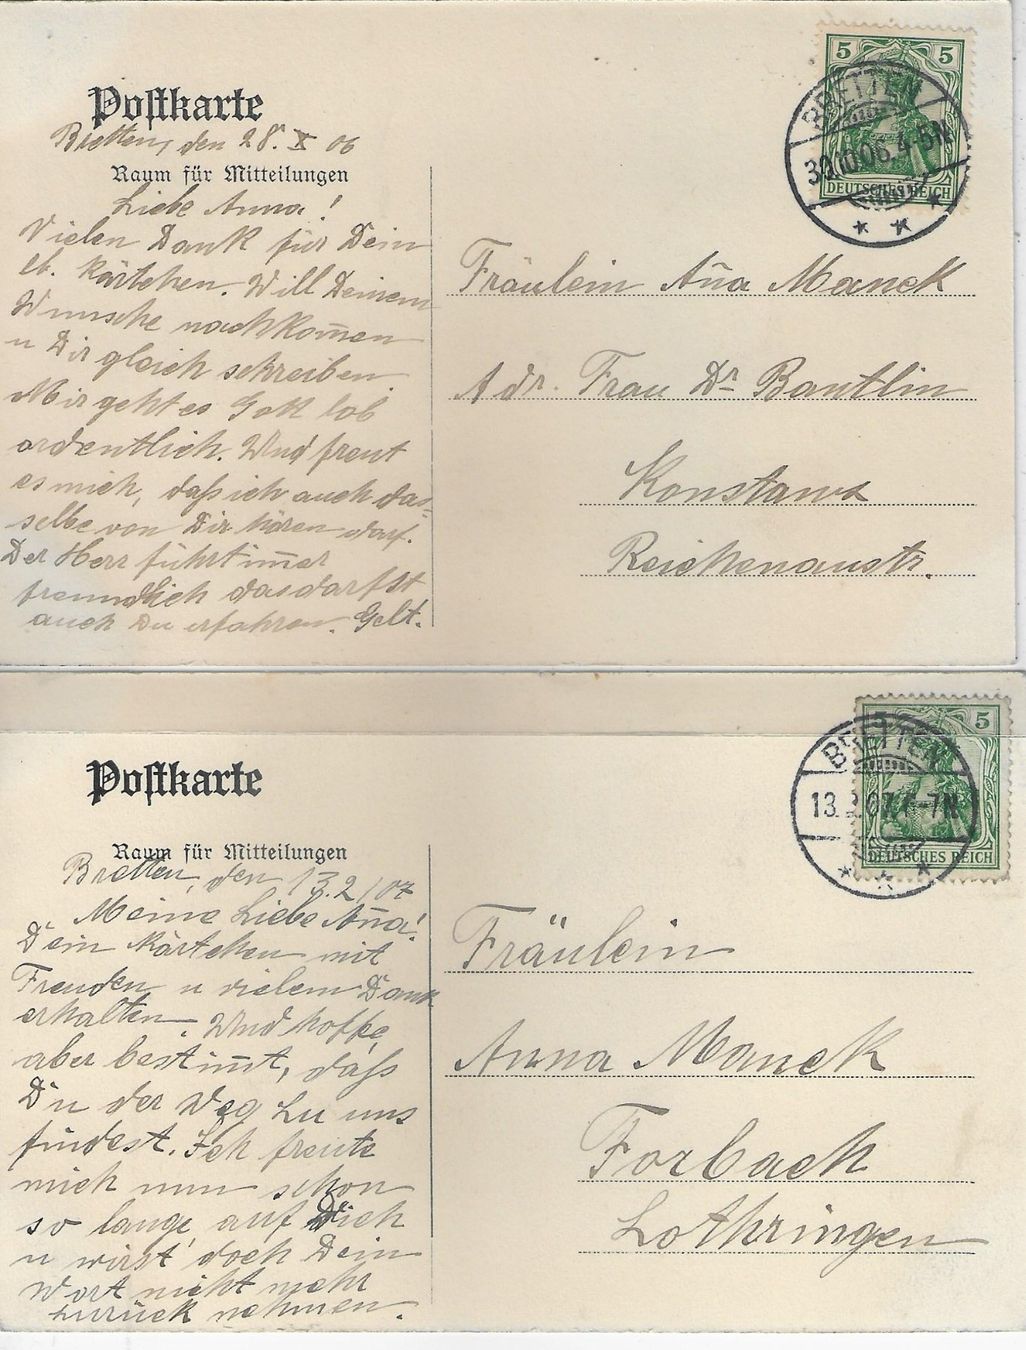 Postkarte
Bretten, den 28. X 06
Raum für Mitteilungen
Liebe Anna!
Vielen Dank für Dein
lb. Kärtchen. Will Deinem
Wunsche nachkom̅en
u Dir gleich schreiben
Mir geht es Gott lob
ordentlich. Und freut
es mich, dass ich auch das=
selbe von Dir hören darf.
Der Herr führt im̅er
freundlich das darfst
auch Du erfahren. Gelt.
5 5
DEUTSCHES REICH
BRETTEN
30.10.06. 4-5N
Fräulein An̅a Manck
Adr. Frau Dr Bantlin
Konstanz
Reichenaustr.
Postkarte
Raum für Mitteilungen
Bretten, den 13.2/07
Meine Liebe An̅a!
Dein Kärtchen mit
Freuden u vielem Dank
erhalten. Und hoffe,
aber bestim̅t, dass
Du der Weg zu uns
findest. Ich freute
mich nun schon
so lange, auf Dich
u wirst doch Dein
Wort nicht mehr
zurück nehmen.
5
DEUTSCHES REICH
BRETTEN
13.2.07. 6-7N
Fräulein
Anna Manck
Forbach
Lothringen